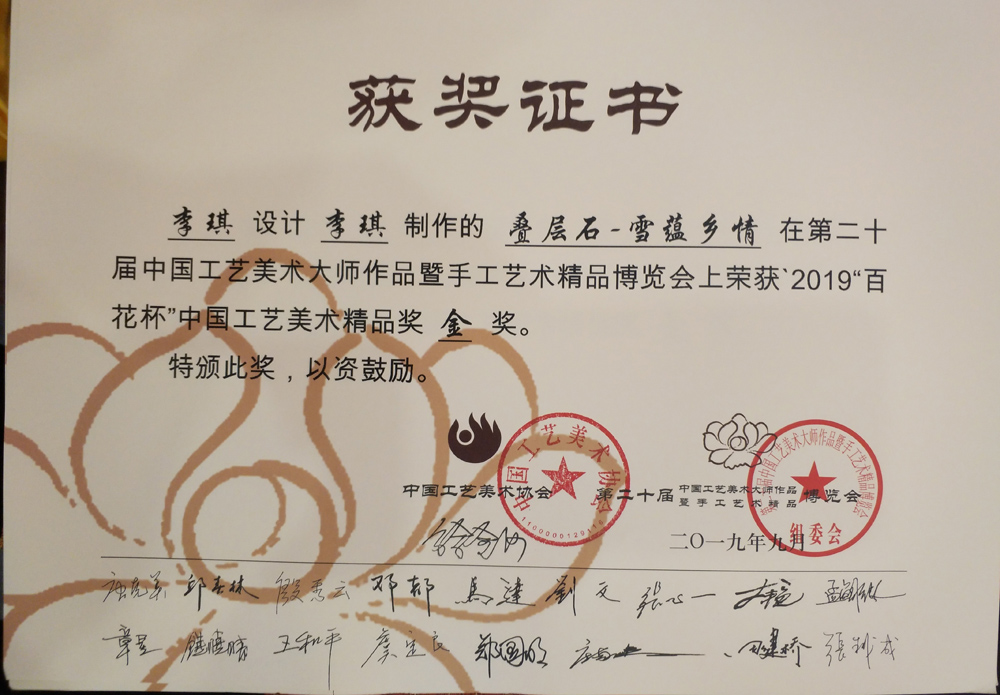 获奖证书
李琪 设计 李琪 制作的 叠层石-雪蕴乡情 在第二十
届中国工艺美术大师作品暨手工艺术精品博览会上荣获`2019“百
花杯”中国工艺美术精品奖 金 奖。
特颁此奖，以资鼓励。
中国工艺美术协会
中国工艺美术协会
第二十届 中国工艺美术大师作品
暨手工艺术精品 博览会
组委会
二〇一九年九月
邱春林 殷秀云 邓郁 馬達 劉文 張心一
王和平 郑国明